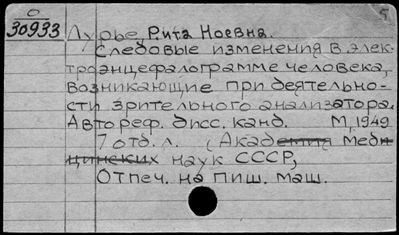 5
О
30933
Лурье, Рита Ноевна.
Следовые изменения в элек-
троэнцефалограмме человека,
возникающие при деятельно-
сти зрительного анализатора.
Автореф. дисс. канд. М, 1949
7 отд. л. (Академия меди
цинских наук СССР,
Отпеч. на пиш. маш.